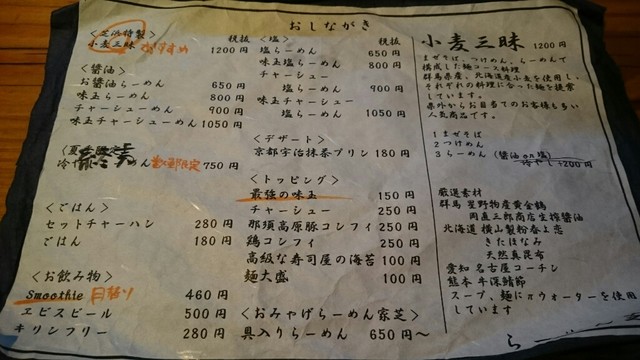 おしながき
<芝浜特製> 税抜
小麦三昧 おすすめ 1200円
<醤油>
お醤油らーめん 650円
味玉らーめん 800円
チャーシューめん 900円
味玉チャーシューめん 1050円
(夏
冷 めん 750円
<ごはん>
セットチャーハン 280円
ごはん 180円
<お飲み物>
Smoothie 月替り 460円
エビスビール 500円
キリンフリー 280円
<塩> 税抜
塩らーめん 650円
味玉塩らーめん 800円
チャーシュー
塩らーめん 900円
味玉チャーシュー
塩らーめん 1050円
<デザート>
京都宇治抹茶プリン 180円
<トッピング>
最強の味玉 150円
チャーシュー 250円
那須高原豚コンフィ 250円
鶏コンフィ 250円
高級な寿司屋の海苔 100円
麺大盛 100円
<おみやげらーめん家芝>
具入りらーめん 650円～
小麦三昧 1200円
まぜそば、つけめん、らーめんで
構成した麺コース料理
群馬県産、北海道産小麦を使用し、
それぞれの料理に合った麺を提案
しています。
県外からお目当てのお客様も多い
人気商品です。
1 まぜそば
2 つけめん
3 らーめん (醤油 or 塩)
冷やし+200円
厳選素材
群馬 星野物産黄金鶴
岡直三郎商店生搾醤油
北海道 横山製粉春よ恋
きたほなみ
天然真昆布
愛知 名古屋コーチン
熊本 平深鯖節
スープ、麺にπウォーターを使用
しています